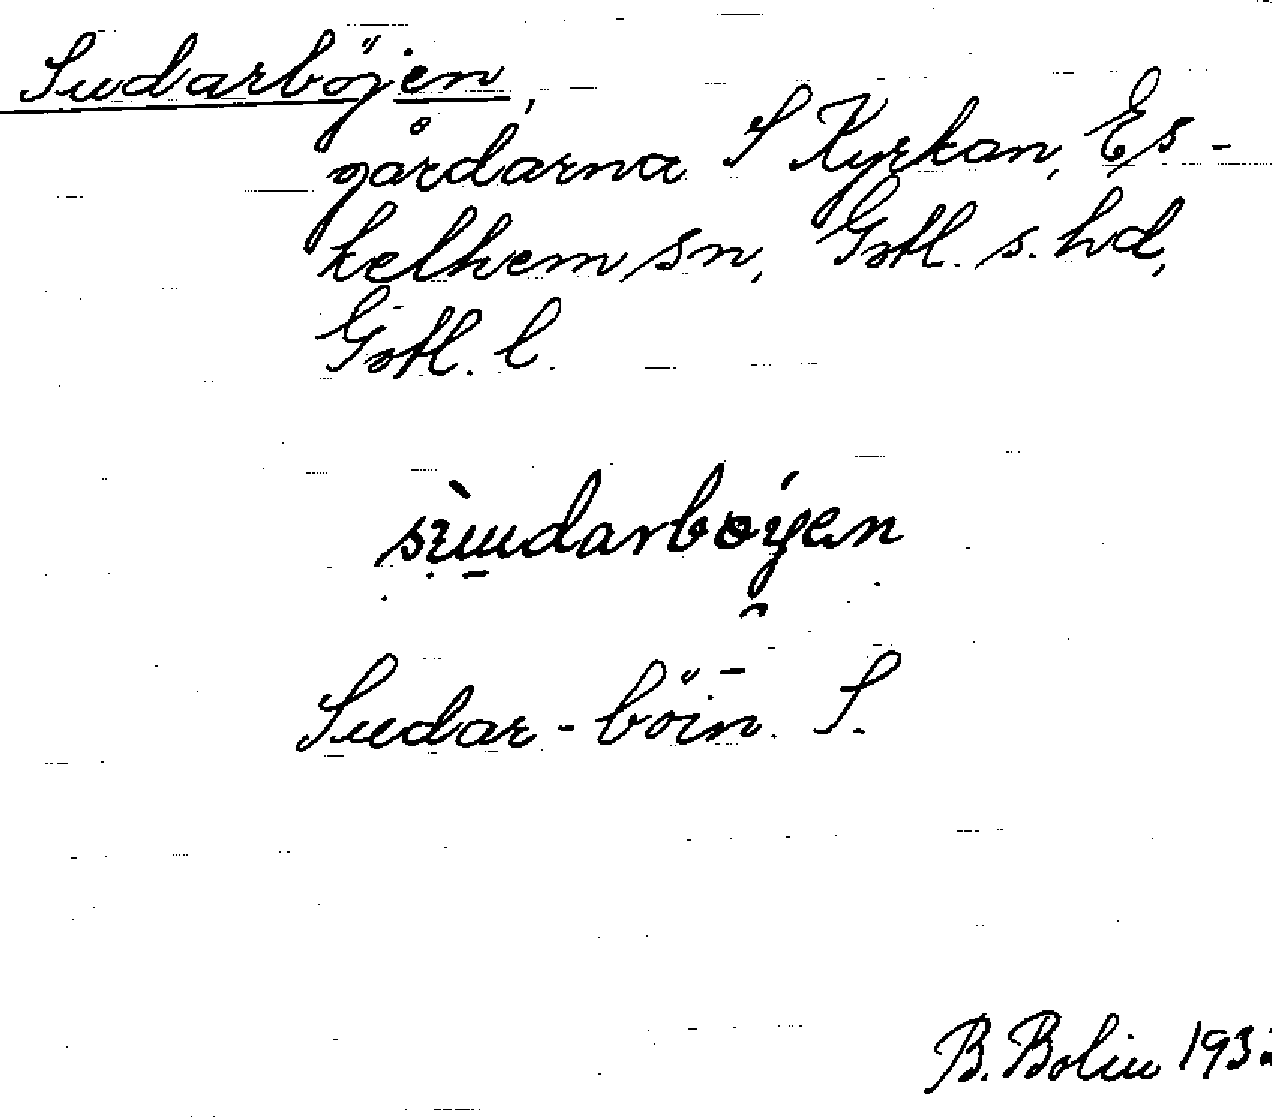 Sudarböjen,
gårdarna S Kyrkan, Es-
kelhem sn, Gotl. s. hd,
Gotl. l.
Sudar-böin. S.
B. Bolin 193